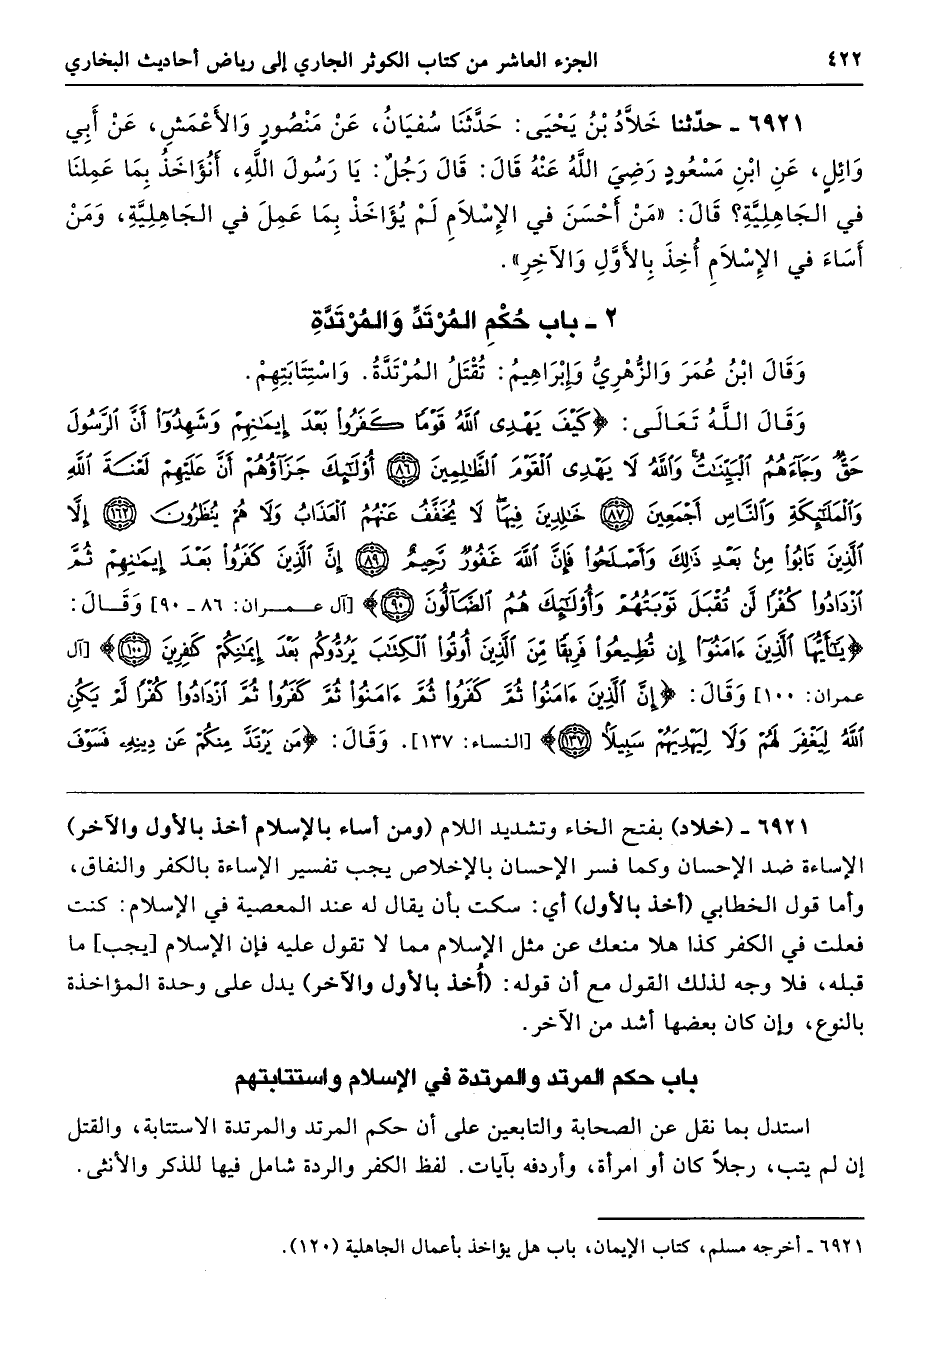 ٤٢٢ الجزء العاشر من كتاب الكوثر الجاري إلى رياض أحاديث البخاري
٦٩٢١ ـ حدّثنا خَلاَّدُ بْنُ يَحْيَى: حَدَّثَنَا سُفيَانُ، عَنْ مَنْصُورٍ وَالأَعْمَشِ، عَنْ أَبِي
وَائِلٍ، عَنِ ابْنِ مَسْعُودٍ رَضِيَ اللَّهُ عَنْهُ قَالَ: قَالَ رَجُلٌ: يَا رَسُولَ اللَّهِ، أَنُؤَاخَذُ بِمَا عَمِلنَا
في الجَاهِلِيَّةِ؟ قَالَ: «مَنْ أَحْسَنَ في الإِسْلاَمِ لَمْ يُؤَاخَذْ بِمَا عَمِلَ في الجَاهِلِيَّةِ، وَمَنْ
أَسَاءَ في الإِسْلاَمِ أُخِذَ بِالأَوَّلِ وَالآخِرِ».
٢ ـ باب حُكْمِ المُرْتَدِّ وَالمُرْتَدَّةِ
وَقَالَ ابْنُ عُمَرَ وَالزُّهْرِيُّ وَإِبْرَاهِيمُ: تُقْتَلُ المُرْتَدَّةُ. وَاسْتِتَابَتِهِمْ.
وَقَالَ اللَّهُ تَعَالَى: ﴿كَيْفَ يَهْدِى ٱللَّهُ قَوْمًا كَفَرُوا۟ بَعْدَ إِيمَـٰنِهِمْ وَشَهِدُوٓا۟ أَنَّ ٱلرَّسُولَ
حَقٌّ وَجَآءَهُمُ ٱلْبَيِّنَـٰتُ ۚ وَٱللَّهُ لَا يَهْدِى ٱلْقَوْمَ ٱلظَّـٰلِمِينَ (٨٦) أُو۟لَـٰٓئِكَ جَزَآؤُهُمْ أَنَّ عَلَيْهِمْ لَعْنَةَ ٱللَّهِ
وَٱلْمَلَـٰٓئِكَةِ وَٱلنَّاسِ أَجْمَعِينَ (٨٧) خَـٰلِدِينَ فِيهَا ۖ لَا يُخَفَّفُ عَنْهُمُ ٱلْعَذَابُ وَلَا هُمْ يُنظَرُونَ (١٦٢) إِلَّا
ٱلَّذِينَ تَابُوا۟ مِنۢ بَعْدِ ذَٰلِكَ وَأَصْلَحُوا۟ فَإِنَّ ٱللَّهَ غَفُورٌ رَّحِيمٌ (٨٩) إِنَّ ٱلَّذِينَ كَفَرُوا۟ بَعْدَ إِيمَـٰنِهِمْ ثُمَّ
ٱزْدَادُوا۟ كُفْرًا لَّن تُقْبَلَ تَوْبَتُهُمْ وَأُو۟لَـٰٓئِكَ هُمُ ٱلضَّآلُّونَ (٩٠)﴾ [آل عمران: ٨٦ ـ ٩٠] وَقَالَ:
﴿يَـٰٓأَيُّهَا ٱلَّذِينَ ءَامَنُوٓا۟ إِن تُطِيعُوا۟ فَرِيقًا مِّنَ ٱلَّذِينَ أُوتُوا۟ ٱلْكِتَـٰبَ يَرُدُّوكُم بَعْدَ إِيمَـٰنِكُمْ كَـٰفِرِينَ (١٠٠)﴾ [آل
عمران: ١٠٠] وَقَالَ: ﴿إِنَّ ٱلَّذِينَ ءَامَنُوا۟ ثُمَّ كَفَرُوا۟ ثُمَّ ءَامَنُوا۟ ثُمَّ كَفَرُوا۟ ثُمَّ ٱزْدَادُوا۟ كُفْرًا لَّمْ يَكُنِ
ٱللَّهُ لِيَغْفِرَ لَهُمْ وَلَا لِيَهْدِيَهُمْ سَبِيلًا (١٣٧)﴾ [النساء: ١٣٧]. وَقَالَ: ﴿مَن يَرْتَدَّ مِنكُمْ عَن دِينِهِۦ فَسَوْفَ
٦٩٢١ ـ (خلاد) بفتح الخاء وتشديد اللام (ومن أساء بالإسلام أخذ بالأول والآخر)
الإساءة ضد الإحسان وكما فسر الإحسان بالإخلاص يجب تفسير الإساءة بالكفر والنفاق،
وأما قول الخطابي (أخذ بالأول) أي: سكت بأن يقال له عند المعصية في الإسلام: كنت
فعلت في الكفر كذا هلا منعك عن مثل الإسلام مما لا تقول عليه فإن الإسلام [يجب] ما
قبله، فلا وجه لذلك القول مع أن قوله: (أُخذ بالأول والآخر) يدل على وحدة المؤاخذة
بالنوع، وإن كان بعضها أشد من الآخر.
باب حكم المرتد والمرتدة في الإسلام واستتابتهم
استدل بما نقل عن الصحابة والتابعين على أن حكم المرتد والمرتدة الاستتابة، والقتل
إن لم يتب، رجلاً كان أو امرأة، وأردفه بآيات. لفظ الكفر والردة شامل فيها للذكر والأنثى.
٦٩٢١ ـ أخرجه مسلم، كتاب الإيمان، باب هل يؤاخذ بأعمال الجاهلية (١٢٠).